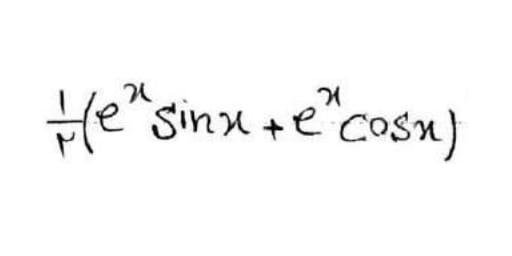 ۱/۲(eˣ sinx + eˣ cosx)